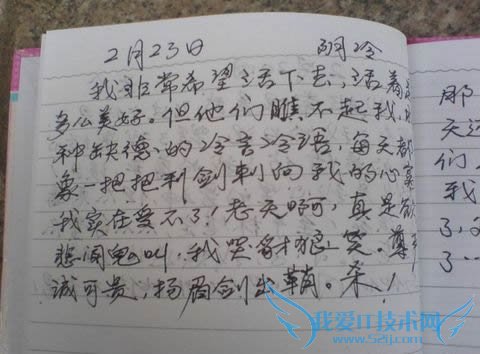 2月23日 阴冷
我非常希望活下去，活着
多么美好。但他们瞧不起我，
种缺德的冷言冷语，每天都
像一把把利剑刺向我的心窝
我实在受不了！老天啊，真是欲
悲闻鬼叫，我哭豺狼笑。尊
诚可贵，扬眉剑出鞘。杀！
那
天
们
我
了，
了…
我爱IT技术网
www.52ij.com